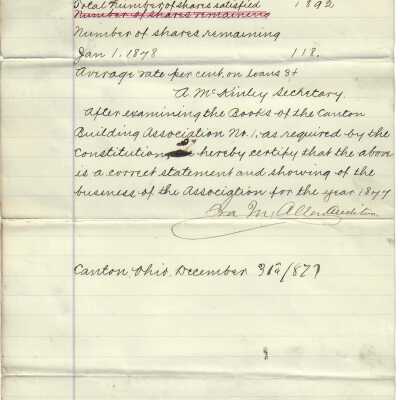 Total Number of shares satisfied 1892
Number of shares remaining
Number of shares remaining
Jan 1. 1878 118.
Average rate per cent. on loans
A McKinley Secretary.
After examining the Books of the Canton
Building Association No. 1, as required by the
Constitution, hereby certify that the above
is a correct statement and showing of the
business of the Association for the year 1877
Ira M. Allen Auditor
Canton, Ohio, December 31st/877